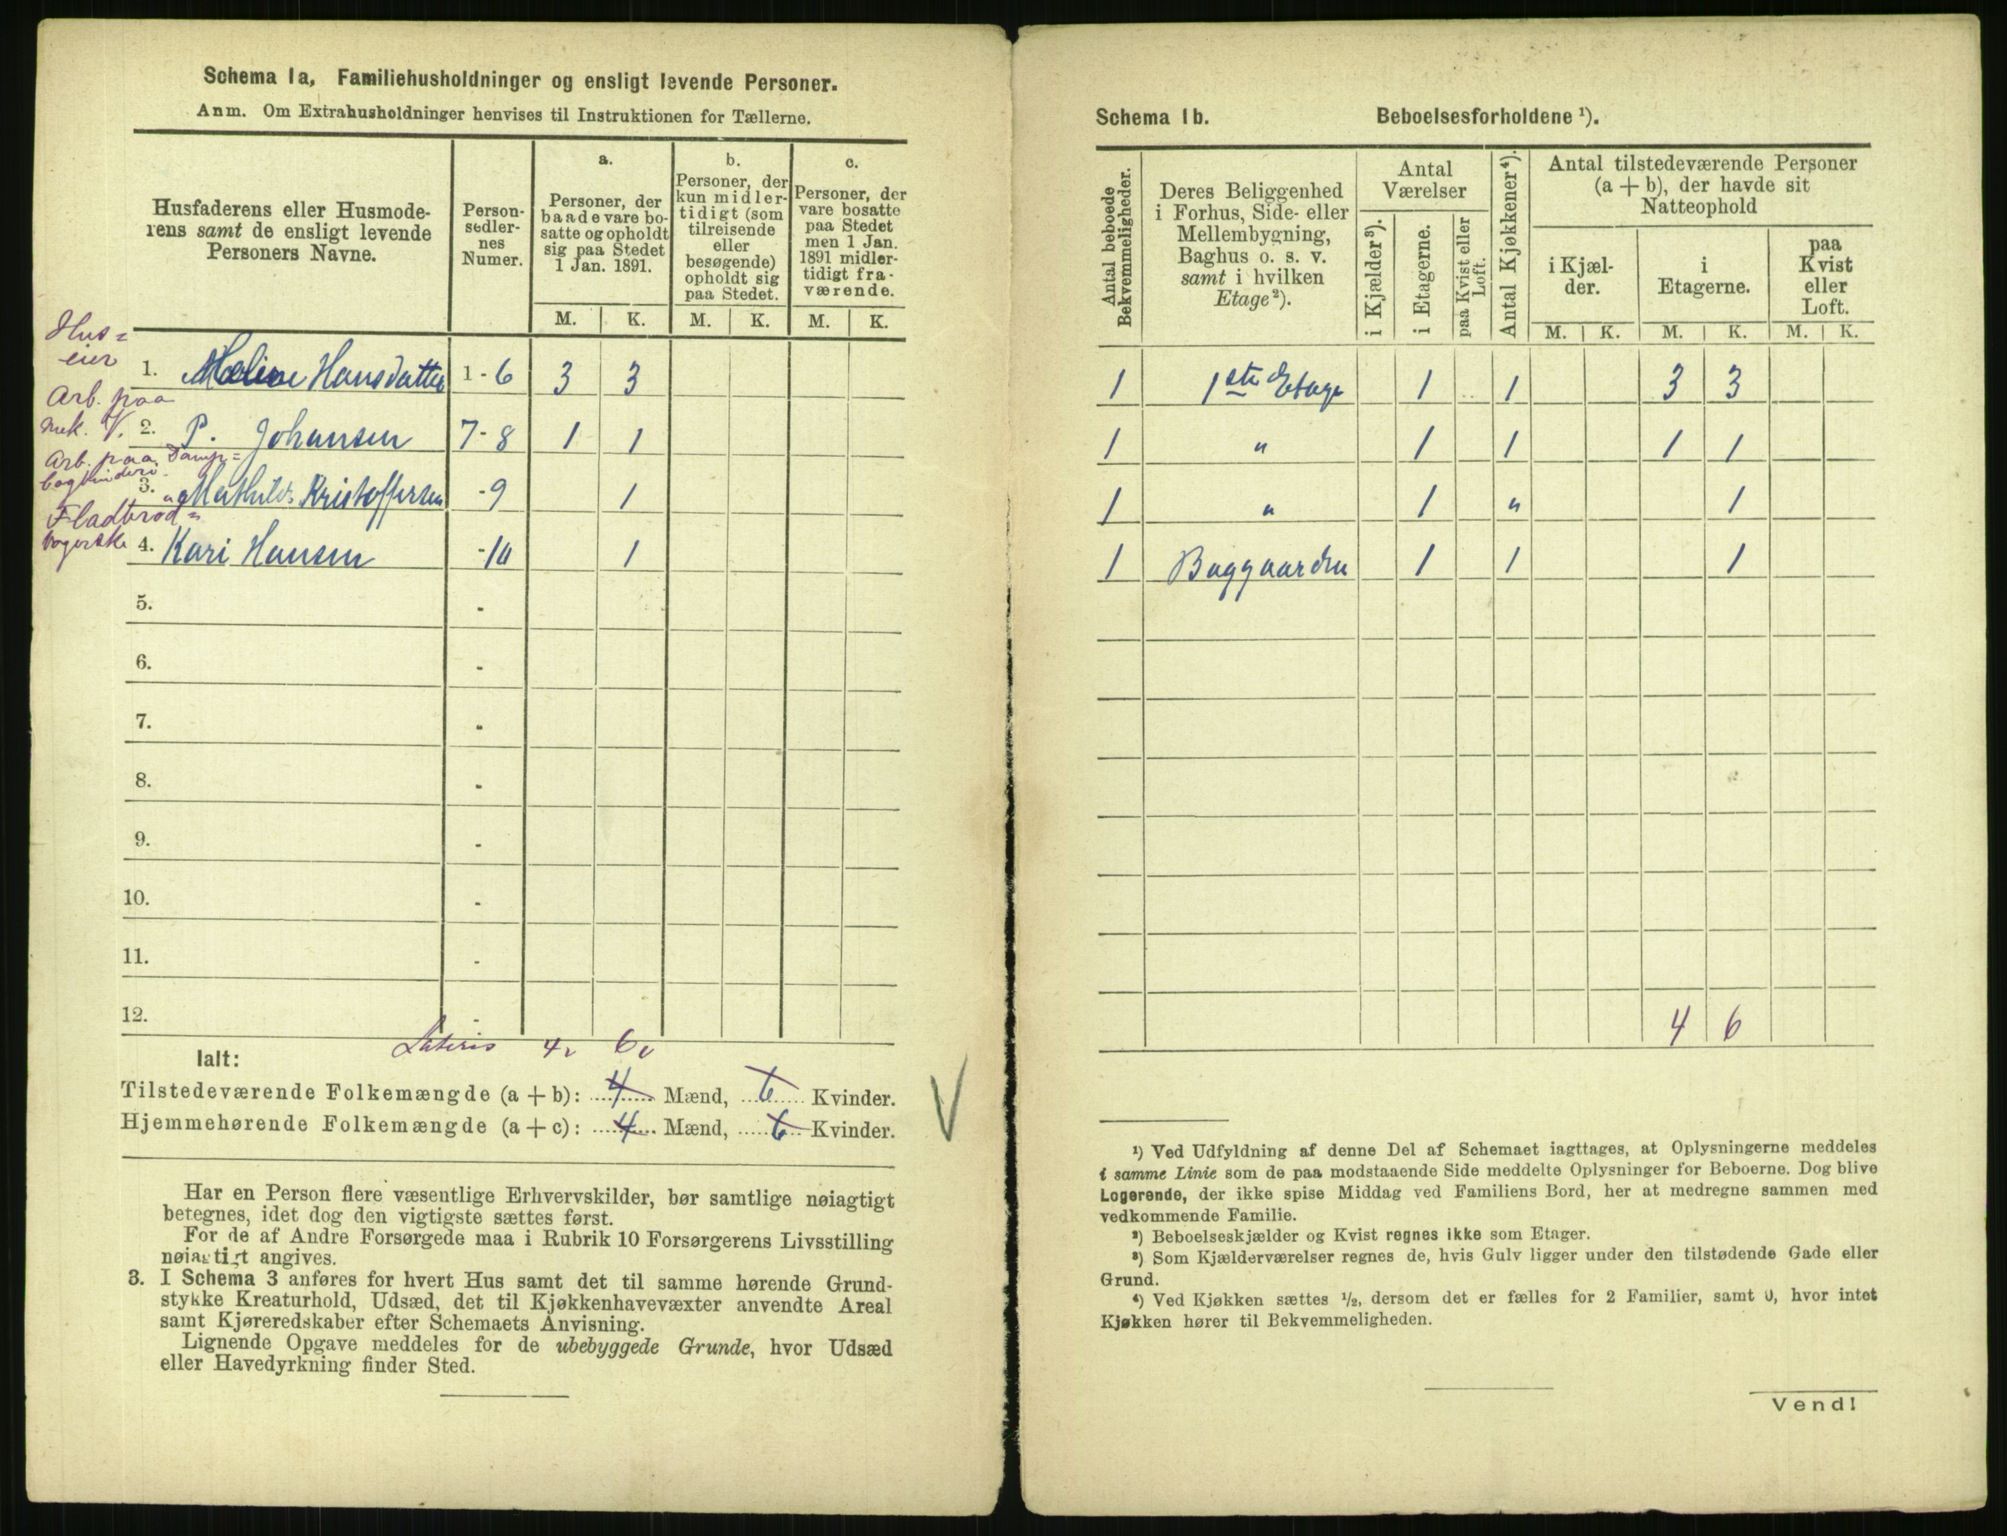 Schema Ia, Familiehusholdninger og ensligt levende Personer.
Anm. Om Extrahusholdninger henvises til Instruktionen for Tællerne.
Husfaderens eller Husmoderens samt de ensligt levende Personers Navne.
Personsedlernes Numer.
a.
Personer, der baade vare bosatte og opholdt sig paa Stedet 1 Jan. 1891.
b.
Personer, der kun midlertidigt (som tilreisende eller besøgende) opholdt sig paa Stedet.
c.
Personer, der vare bosatte paa Stedet men 1 Jan. 1891 midlertidigt fraværende.
M. K. M. K. M. K.
Hus=
eier
1. Maline Hansdatter 1-6 3 3
Arb. paa
mek. V.
2. P. Johansen 7-8 1 1
Arb. paa Damp=
bogbinderi
3. Mathilde Kristoffersen -9 1
Fladbrød=
bagerske
4. Kari Hansen -10 1
5. -
6. -
7. -
8. -
9. -
10. -
11. -
12. -
Lateris 4 6
Ialt:
Tilstedeværende Folkemængde (a + b): 4 Mænd, 6 Kvinder.
Hjemmehørende Folkemængde (a + c): 4 Mænd, 6 Kvinder.
Har en Person flere væsentlige Erhvervskilder, bør samtlige nøiagtigt
betegnes, idet dog den vigtigste sættes først.
For de af Andre Forsørgede maa i Rubrik 10 Forsørgerens Livsstilling
nøiagtigt angives.
3. I Schema 3 anføres for hvert Hus samt det til samme hørende Grund-
stykke Kreaturhold, Udsæd, det til Kjøkkenhavevæxter anvendte Areal
samt Kjøreredskaber efter Schemaets Anvisning.
Lignende Opgave meddeles for de ubebyggede Grunde, hvor Udsæd
eller Havedyrkning finder Sted.
Schema Ib. Beboelsesforholdene ¹).
Antal beboede Bekvemmeligheder.
Deres Beliggenhed i Forhus, Side- eller Mellembygning, Baghus o. s. v. samt i hvilken Etage ²).
Antal Værelser
i Kjælder ³).
i Etagerne.
paa Kvist eller Loft.
Antal Kjøkkener ⁴).
Antal tilstedeværende Personer (a + b), der havde sit Natteophold
i Kjælder.
i Etagerne.
paa Kvist eller Loft.
M. K. M. K. M. K.
1 1ste Etage 1 1 3 3
1 " 1 1 1 1
1 " 1 " 1
1 Baggaarden 1 1 1
4 6
¹) Ved Udfyldning af denne Del af Schemaet iagttages, at Oplysningerne meddeles
i samme Linie som de paa modstaaende Side meddelte Oplysninger for Beboerne. Dog blive
Logerende, der ikke spise Middag ved Familiens Bord, her at medregne sammen med
vedkommende Familie.
²) Beboelseskjælder og Kvist regnes ikke som Etager.
³) Som Kjælderværelser regnes de, hvis Gulv ligger under den tilstødende Gade eller
Grund.
⁴) Ved Kjøkken sættes ½, dersom det er fælles for 2 Familier, samt 0, hvor intet
Kjøkken hører til Bekvemmeligheden.
Vend!